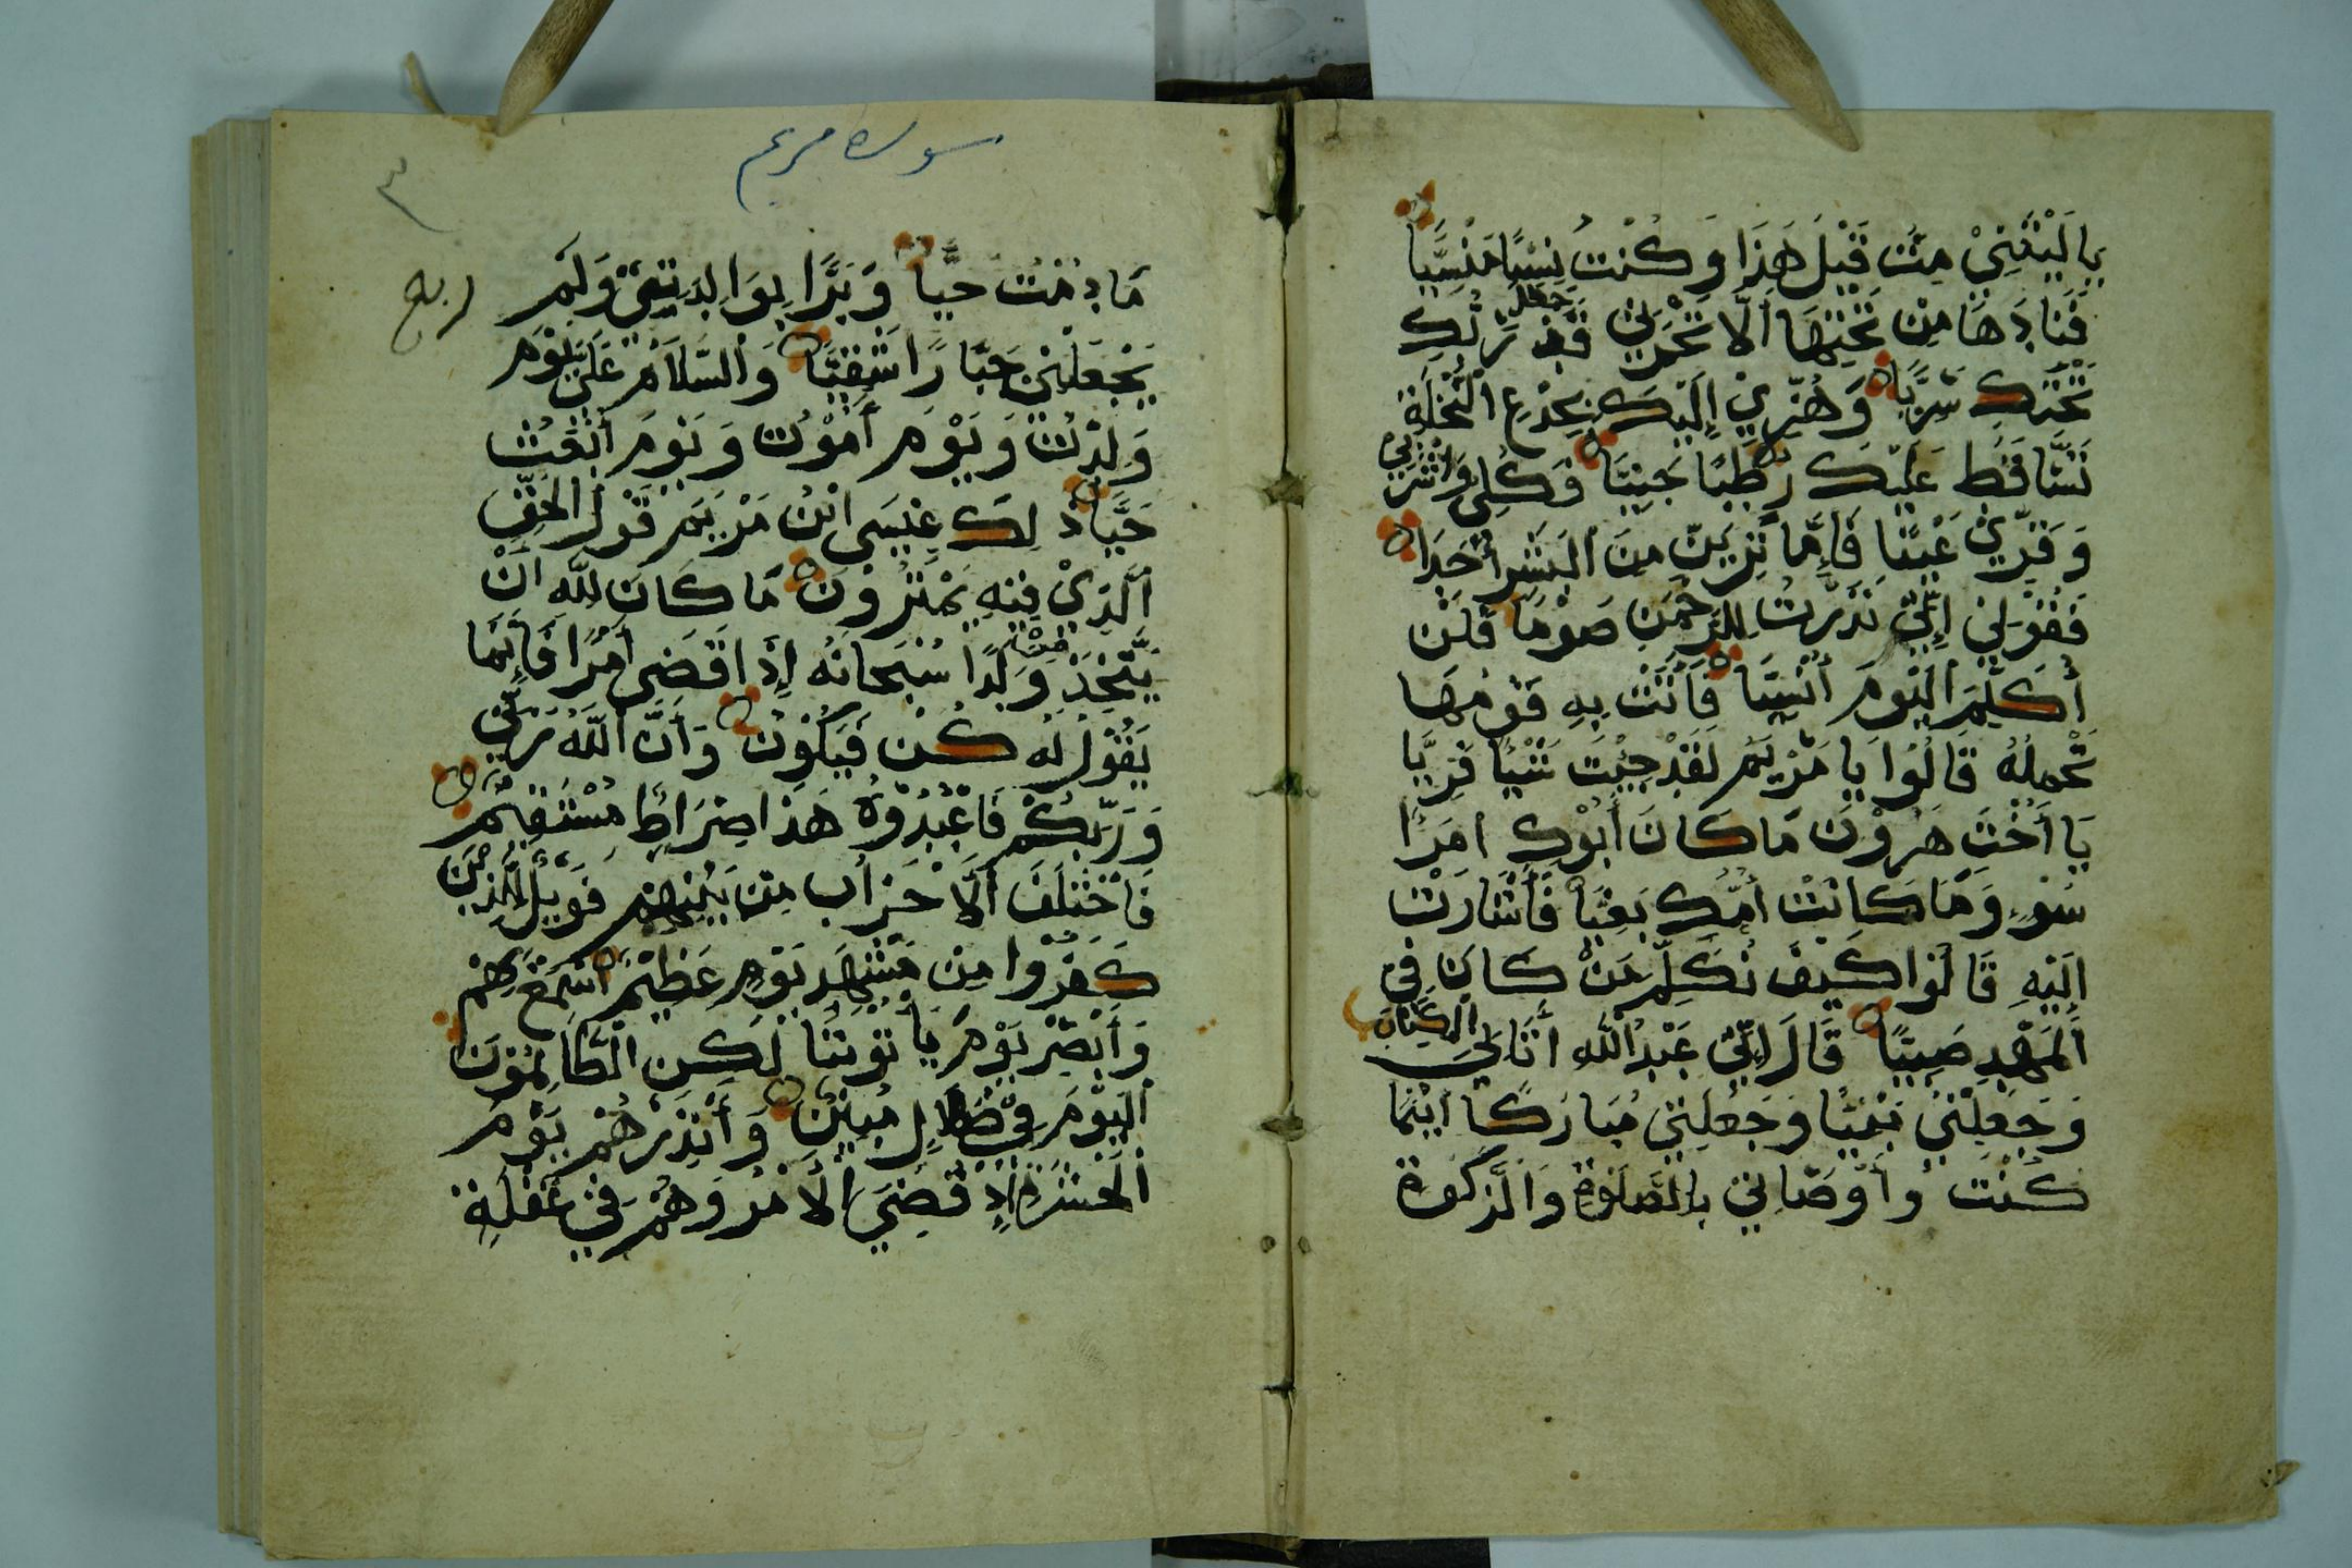 يالَيْتَنِيْ مِتُّ قَبْلَ هَذَا وَكُنْتُ نِسْيًا مَنْسِيًّا
فَنَادَهَا مِنْ تَحْتِهَا أَلَّا تَحْزَنِيْ قَدْ جعل رَبُّكِ
تَحْتَكِ سَرِيًّا وَهُزِّيْ إِلَيْكِ بِجِذْعِ النَّخْلَةِ
تَسَّاقَطْ عَلَيْكِ رُطَبًا جَنِيًّا فَكُلِي وَاشْرَبِي
وَقَرِّيْ عَيْنًا فَإِمَّا تَرَيِنَّ مِنَ الْبَشَرِ أَحَدًا
فَقُوْلِيْ إِنِّيْ نَذَرْتُ لِلرَّحْمَنِ صَوْمًا فَلَنْ
أُكَلِّمَ الْيَوْمَ أَنْسِيًّا فَأَتَتْ بِهِ قَوْمَهَا
تَحْمِلُهُ قَالُوْا يَا مَرْيَمُ لَقَدْ جِيْتِ شَيْئًا فَرِيًّا
يَا أُخْتَ هَرُوْنَ مَا كَانَ أَبُوْكِ امْرَأَ
سَوْءٍ وَمَا كَانَتْ أُمُّكِ بَغِيًّا فَأَشَارَتْ
إِلَيْهِ قَالُوْا كَيْفَ نُكَلِّمُ مَنْ كَانَ فِي
الْمَهْدِ صَبِيًّا قَالَ إِنِّيْ عَبْدُ اللَّهِ أَتَانِيَ الْكِتَابَ
وَجَعَلَنِيْ نَبِيًّا وَجَعَلَنِيْ مُبَارَكًا أَيْنَمَا
كُنْتُ وَأَوْصَانِيْ بِالصَّلَوةِ وَالزَّكَوةِ
سوره مريم
٣
ربع
مَا دُمْتُ حَيًّا وَبَرًّا بِوَالِدَتِيْ وَلَمْ
يَجْعَلْنِيْ جَبَّارًا شَقِيًّا وَالسَّلَامُ عَلَيَّ يَوْمَ
وُلِدْتُ وَيَوْمَ أَمُوْتُ وَيَوْمَ أُبْعَثُ
حَيًّا ذَلِكَ عِيْسَى ابْنُ مَرْيَمَ قَوْلَ الْحَقِّ
الَّذِيْ فِيْهِ يَمْتَرُوْنَ مَا كَانَ لِلَّهِ أَنْ
يَتَّخِذَ مِنْ وَلَدًا سُبْحَانَهُ إِذَا قَضَى أَمْرًا فَإِنَّمَا
يَقُوْلُ لَهُ كُنْ فَيَكُوْنُ وَأَنَّ اللَّهَ رَبِّيْ
وَرَبُّكُمْ فَاعْبُدُوْهُ هَذَا صِرَاطٌ مُسْتَقِيْمٌ
فَاخْتَلَفَ الْأَحْزَابُ مِنْ بَيْنِهِمْ فَوَيْلٌ لِلَّذِيْنَ
كَفَرُوْا مِنْ مَشْهَدِ يَوْمٍ عَظِيْمٍ أَسْمِعْ بِهِمْ
وَأَبْصِرْ يَوْمَ يَأْتُوْنَنَا لَكِنِ الظَّالِمُوْنَ
الْيَوْمَ فِيْ ضَلَالٍ مُبِيْنٍ وَأَنْذِرْهُمْ يَوْمَ
الْحَسْرَةِ إِذْ قُضِيَ الْأَمْرُ وَهُمْ فِيْ غَفْلَةٍ